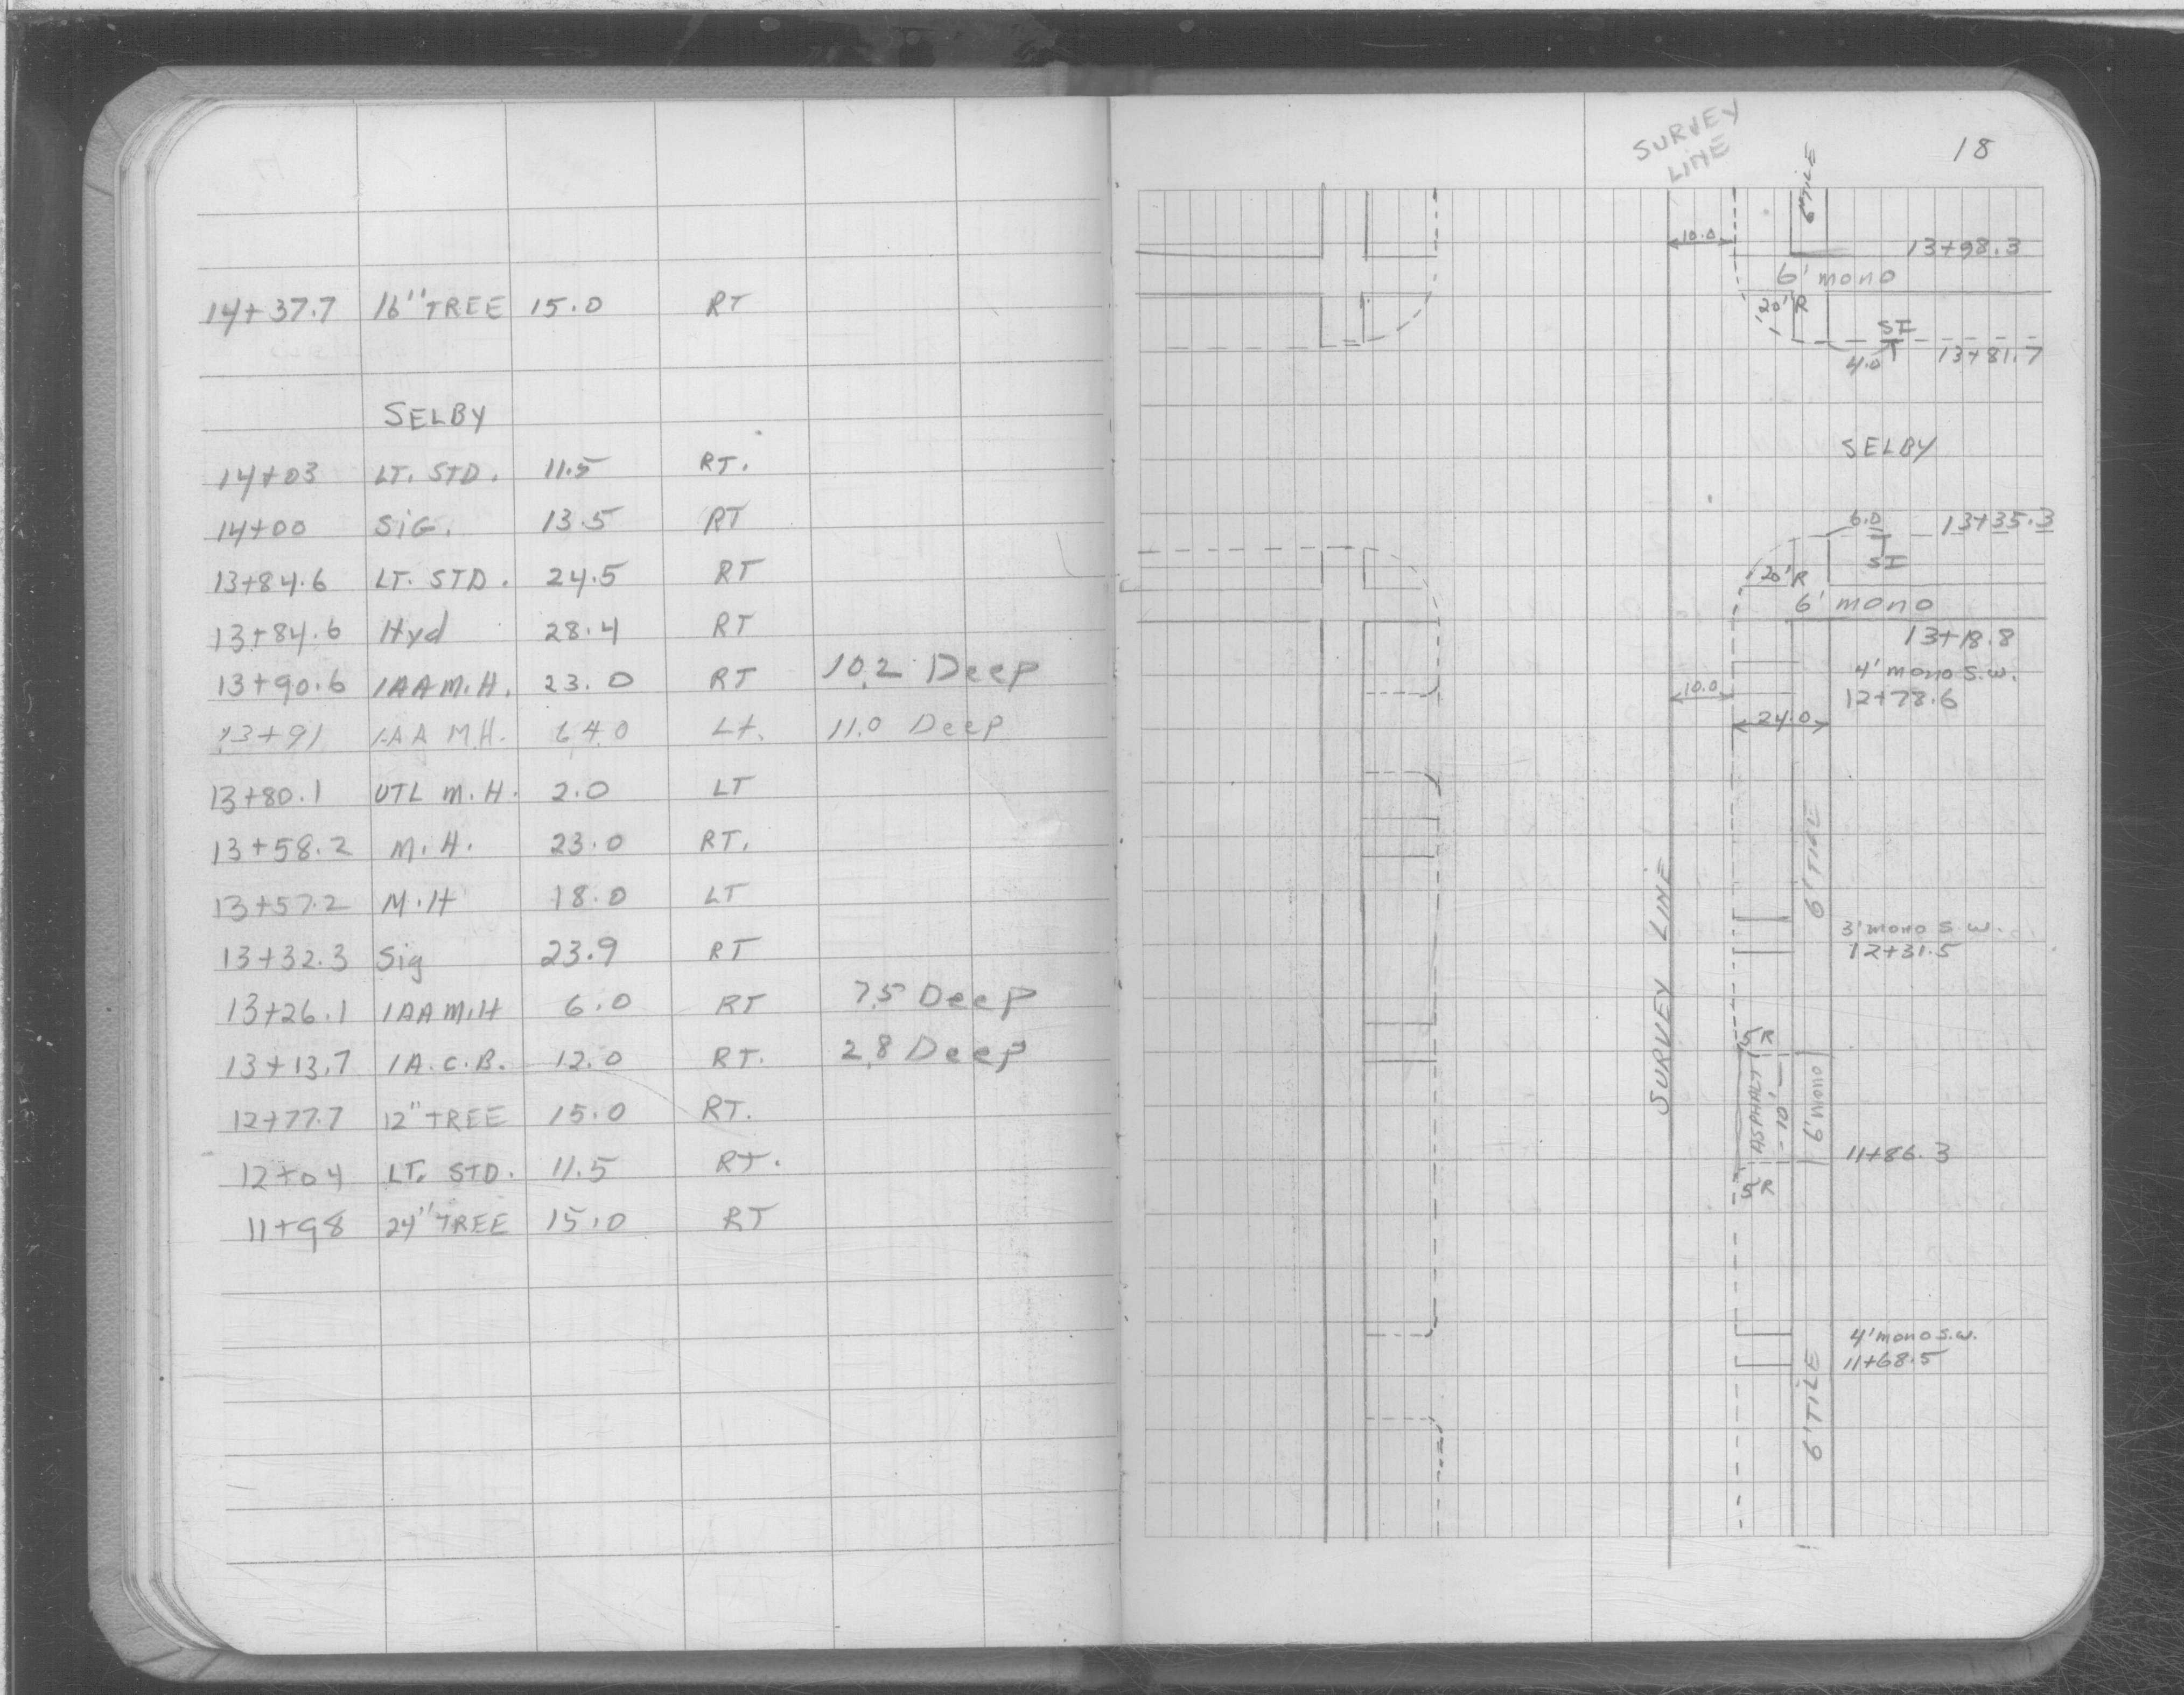 14+37.7 16" TREE 15.0 RT
SELBY
14+03 LT. STD. 11.5 RT.
14+00 SIG. 13.5 RT
13+84.6 LT. STD. 24.5 RT
13+84.6 Hyd 28.4 RT
13+90.6 1AA M.H. 23.0 RT 10.2 Deep
13+91 1AA M.H. 64.0 Lt. 11.0 Deep
13+80.1 UTL M.H. 2.0 LT
13+58.2 M.H. 23.0 RT.
13+57.2 M.H 18.0 LT
13+32.3 Sig 23.9 RT
13+26.1 1AA M.H 6.0 RT 7.5 Deep
13+13.7 1A.C.B. 12.0 RT. 2.8 Deep
12+77.7 12" TREE 15.0 RT.
12+04 LT. STD. 11.5 RT.
11+98 24" TREE 15.0 RT
18
SURVEY
LINE
6' TILE
10.0
13+98.3
6' mono
20' R
SI
4.0
13+81.7
SELBY
6.0
13+35.3
SI
20' R
6' mono
13+18.8
4' mono S.W.
12+78.6
10.0
24.0
6' TILE
SURVEY LINE
3' mono S.W.
12+31.5
5 R
ASPHALT
10'
6' mono
11+86.3
5 R
4' mono S.W.
11+68.5
6' TILE